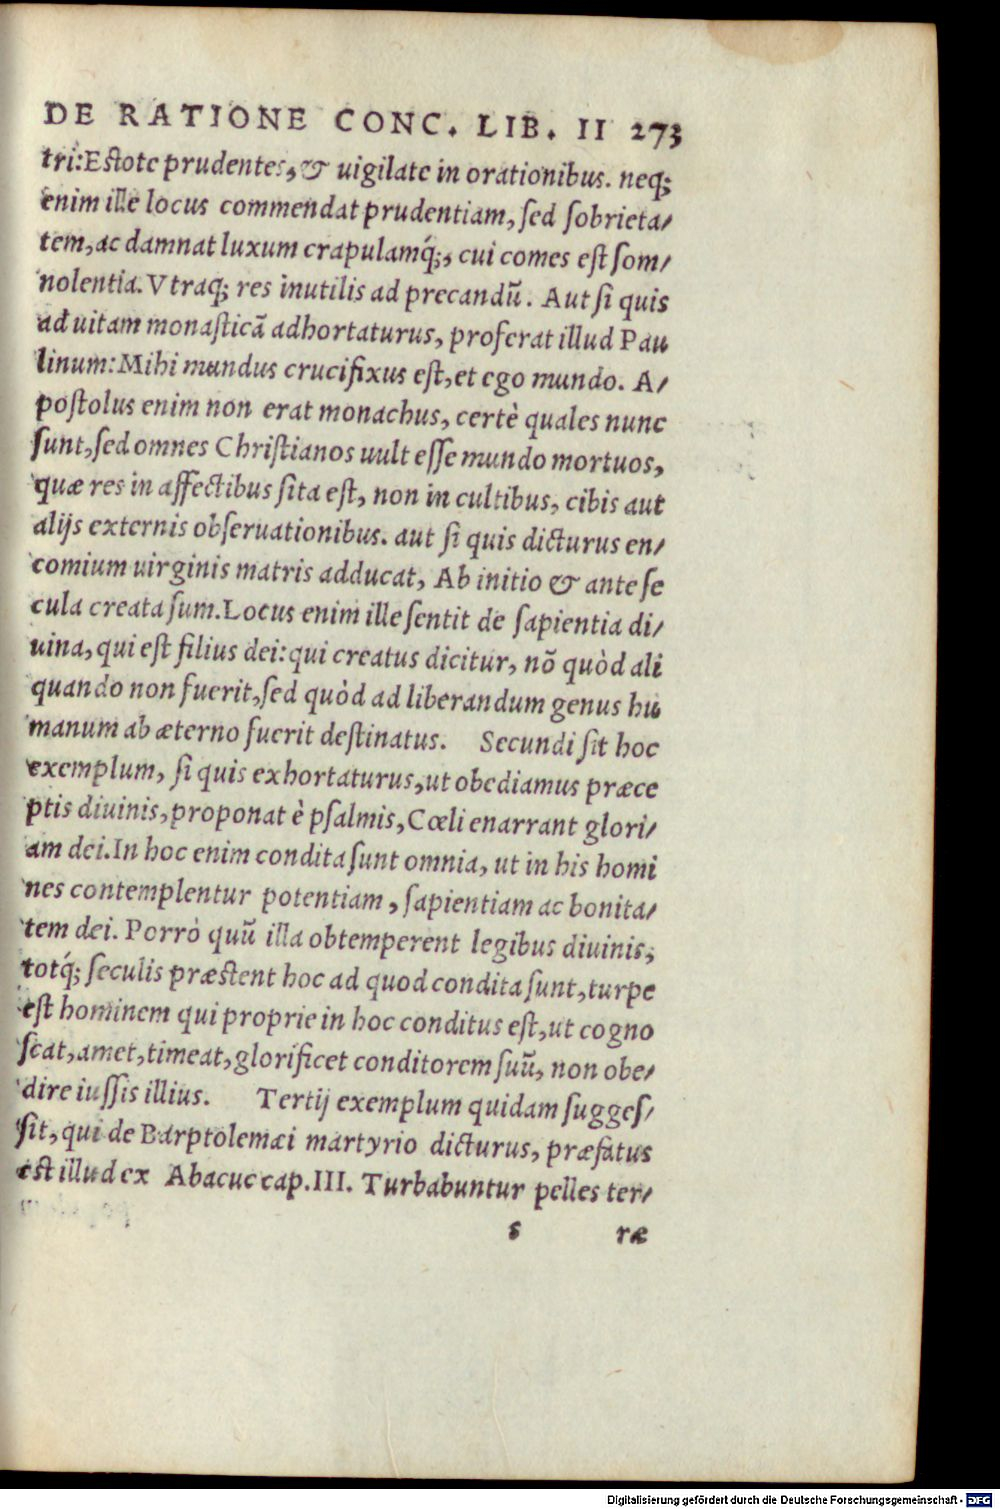 DE RATIONE CONC. LIB. II 273
tri: Estote prudentes, & uigilate in orationibus. neq;
enim ille locus commendat prudentiam, sed sobrieta/
tem, ac damnat luxum crapulamq́;, cui comes est som/
nolentia. Vtraq; res inutilis ad precandū. Aut si quis
ad uitam monasticā adhortaturus, proferat illud Pau
linum: Mihi mundus crucifixus est, et ego mundo. A/
postolus enim non erat monachus, certè quales nunc
sunt, sed omnes Christianos uult esse mundo mortuos,
quæ res in affectibus sita est, non in cultibus, cibis aut
alijs externis obseruationibus. aut si quis dicturus en/
comium uirginis matris adducat, Ab initio & ante se
cula creata sum. Locus enim ille sentit de sapientia di/
uina, qui est filius dei: qui creatus dicitur, nō quòd ali
quando non fuerit, sed quòd ad liberandum genus hu
manum ab æterno fuerit destinatus. Secundi sit hoc
exemplum, si quis exhortaturus, ut obediamus præce
ptis diuinis, proponat è psalmis, Cœli enarrant glori/
am dei. In hoc enim condita sunt omnia, ut in his homi
nes contemplentur potentiam, sapientiam ac bonita/
tem dei. Porrò quū illa obtemperent legibus diuinis,
totq́; seculis præstent hoc ad quod condita sunt, turpe
est hominem qui proprie in hoc conditus est, ut cogno
scat, amet, timeat, glorificet conditorem suū, non obe/
dire iussis illius. Tertij exemplum quidam sugges/
sit, qui de Barptolemæi martyrio dicturus, præfatus
est illud ex Abacuc cap. III. Turbabuntur pelles ter/
s ræ
Digitalisierung gefördert durch die Deutsche Forschungsgemeinschaft - DFG